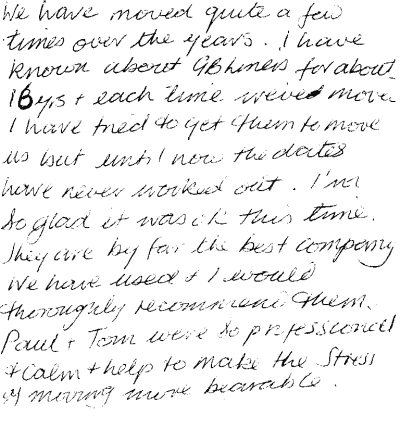 We have moved quite a few
times over the years. I have
known about GB Liners for about
16yrs + each time we've move
I have tried to get them to move
us but until now the dates
have never worked out. I'm
so glad it was ok this time.
They are by far the best company
we have used + I would
thoroughly recommend them.
Paul + Tom were so professional
+ calm + help to make the stress
of moving more bearable.